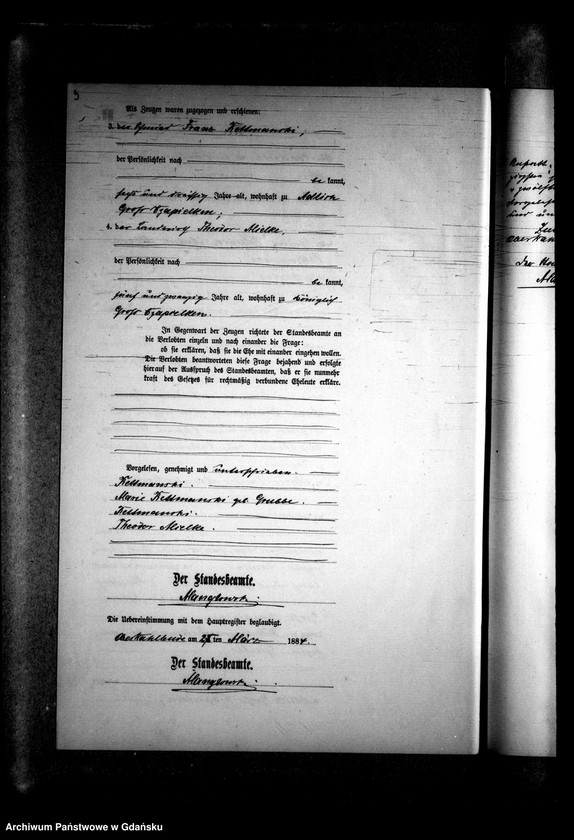 Als Zeugen waren zugezogen und erschienen:
3. der Schmied Franz Kettmanski,
der Persönlichkeit nach
be kannt,
sechs und dreißig Jahre alt, wohnhaft zu Adlich
Groß Czapielken;
4. der Landwirth Theodor Mielke,
der Persönlichkeit nach
be kannt,
fünf und zwanzig Jahre alt, wohnhaft zu Königlich
Groß Czapielken.
In Gegenwart der Zeugen richtete der Standesbeamte an
die Verlobten einzeln und nach einander die Frage:
ob sie erklären, daß sie die Ehe mit einander eingehen wollen.
Die Verlobten beantworteten diese Frage bejahend und erfolgte
hierauf der Ausspruch des Standesbeamten, daß er sie nunmehr
kraft des Gesetzes für rechtmäßig verbundene Eheleute erkläre.
Vorgelesen, genehmigt und unterschrieben.
Kettmanski.
Marie Kettmanski geb. Grubbe.
Kettmanski.
Theodor Mielke.
Der Standesbeamte.
Die Uebereinstimmung mit dem Hauptregister beglaubigt.
am ten März 1884.
Der Standesbeamte.
Archiwum Państwowe w Gdańsku